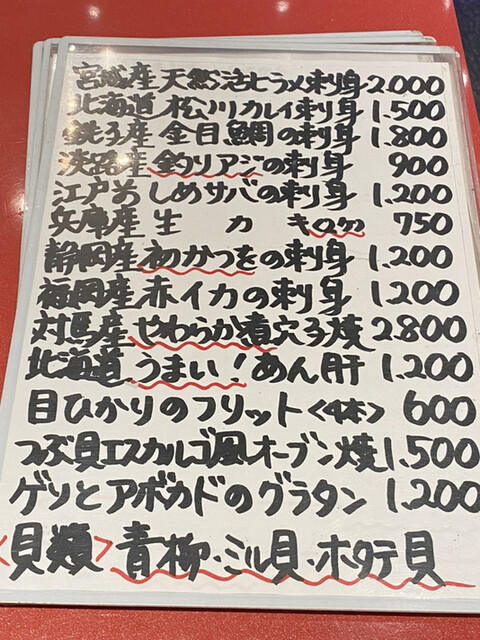 宮城産天然活ヒラメ刺身2.000
北海道松川カレイ刺身1.500
銚子産金目鯛の刺身1.800
淡路産釣りアジの刺身900
江戸前しめサバの刺身1.200
兵庫産生カキ 750
静岡産初かつをの刺身1.200
福岡産赤イカの刺身1.200
対馬産やわらか煮穴子焼2.800
北海道うまい!あん肝1.200
目ひかりのフリット<4本>600
つぶ貝エスカルゴ風オーブン焼1.500
ゲソとアボカドのグラタン1.200
<貝類>青柳・ミル貝・ホタテ貝